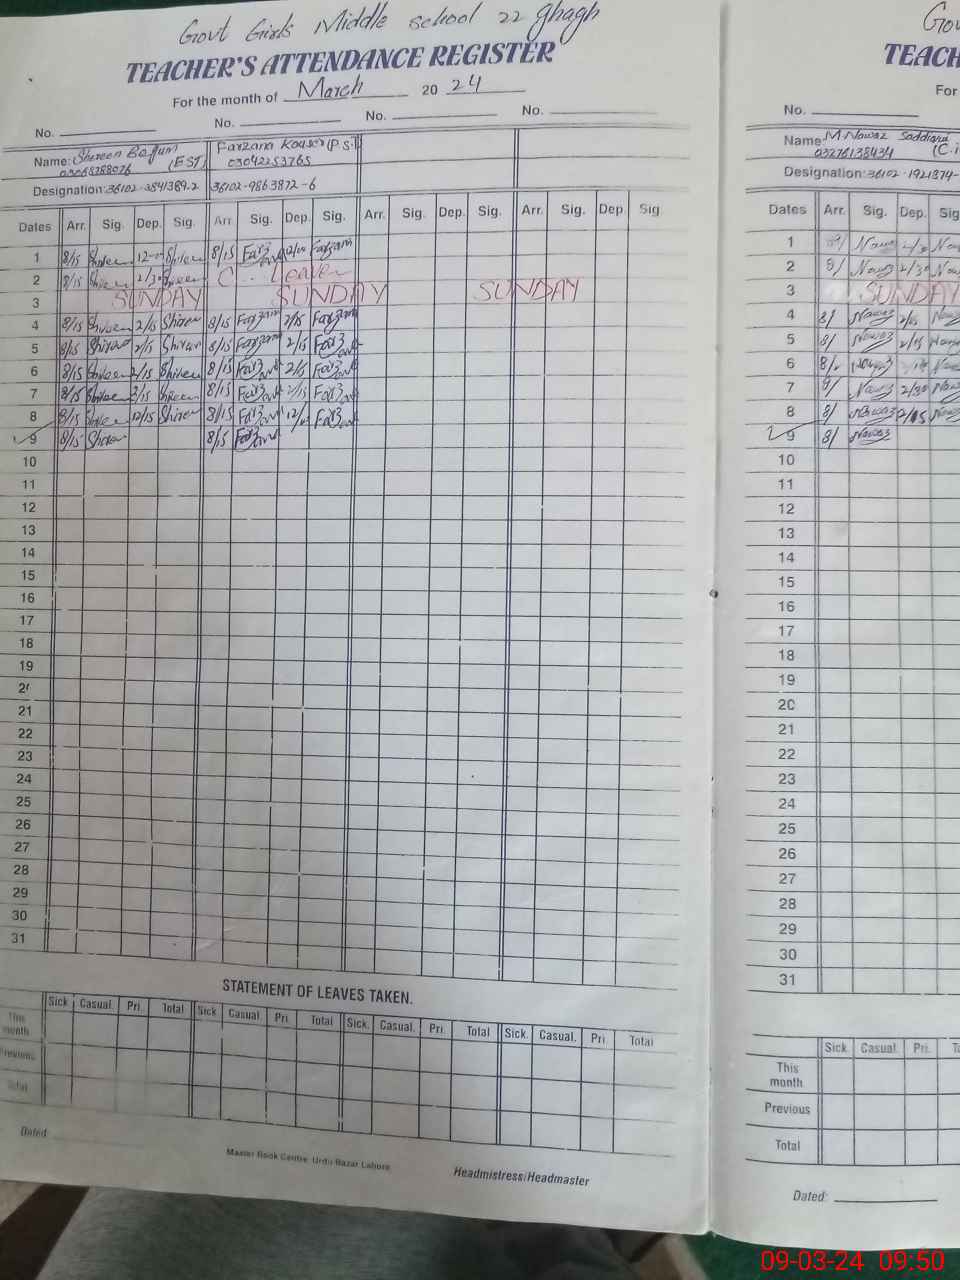 Govt Girls Middle school 22 Ghagh
TEACHER'S ATTENDANCE REGISTER
For the month of March 20 24
No. No. No. No.
Name: Shireen Begum (EST) Farzana Kousar (P.S.T)
03068788076 03042253765
Designation: 36102-2841389-2 36102-9863872-6
Dates Arr. Sig. Dep. Sig. Arr. Sig. Dep. Sig. Arr. Sig. Dep. Sig. Arr. Sig. Dep. Sig
1 8/15 Shireen 12- Shireen 8/15 Farzana 12/ Farzana
2 8/15 Shireen 2/30 Shireen C. Leave
3 SUNDAY SUNDAY SUNDAY
4 8/15 Shireen 2/15 Shireen 8/15 Farzana 2/15 Farzana
5 8/15 Shireen 2/15 Shireen 8/15 Farzana 2/15 Farzana
6 8/15 Shireen 2/15 Shireen 8/15 Farzana 2/15 Farzana
7 8/15 Shireen 2/15 Shireen 8/15 Farzana 2/15 Farzana
8 8/15 Shireen 12/15 Shireen 8/15 Farzana 12/ Farzana
9 8/15 Shireen 8/15 Farzana
10
11
12
13
14
15
16
17
18
19
20
21
22
23
24
25
26
27
28
29
30
31
STATEMENT OF LEAVES TAKEN.
Sick Casual. Pri. Total Sick. Casual. Pri. Total Sick. Casual. Pri. Total Sick. Casual. Pri. Total
This month
Previous
Total
Dated
Master Book Centre Urdu Bazar Lahore
Headmistress/Headmaster
Gov
TEACH
For
No.
Name: M Nawaz Saddiqui (C.
03276138434
Designation: 36102-1921374-
Dates Arr. Sig. Dep. Sig
1 8/ Nawaz 2/30 Naw
2 8/ Nawaz 2/30 Naw
3 SUNDAY
4 8/ Nawaz 2/15 Nawaz
5 8/ Nawaz 2/15 Nawaz
6 8/ Nawaz Nawa
7 8/ Nawaz 2/30 Nawa
8 8/ Nawaz 2/15 Nawaz
9 8/ Nawaz
10
11
12
13
14
15
16
17
18
19
20
21
22
23
24
25
26
27
28
29
30
31
Sick. Casual. Pri. To
This month
Previous
Total
Dated:
09-03-24 09:50